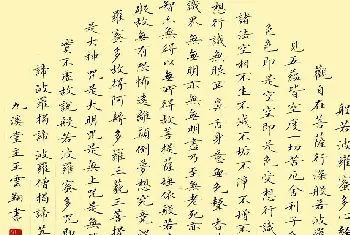 若波羅蜜多心經
觀自在菩薩行深般若波
見五蘊皆空度一切苦厄舍利子
色色即是空空即是色受想行識
諸法空相不生不滅不垢不淨不增不
想行識無眼耳鼻舌身意無色聲香
界無無明亦無無明盡乃至無老死亦
智亦無得以無所得故菩提薩埵依般若
礙故無有恐怖遠離顛倒夢想究竟涅
羅蜜多故得阿耨多羅三藐三菩
是大神咒是大明咒是無上咒是無
實不虛故說般若波羅蜜多咒即
諦波羅揭諦波羅僧揭諦菩
九溪堂主王雲翔書